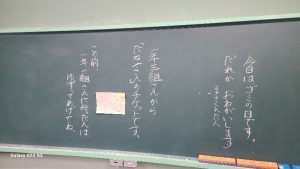 今日はゴミの日です。
だれか おねがいします
一年三組さんから
だがし屋さんのチケットです。
この前
一年一組さんに行た人は
ゆずってあげてね。
Galaxy S23 5G